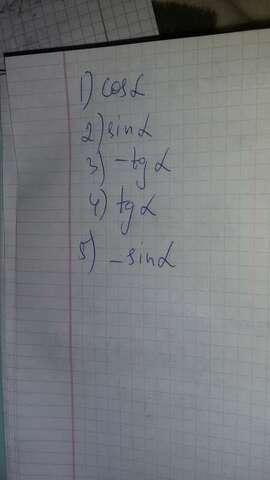 1) cosα
2) sinα
3) -tgα
4) tgα
5) -sinα